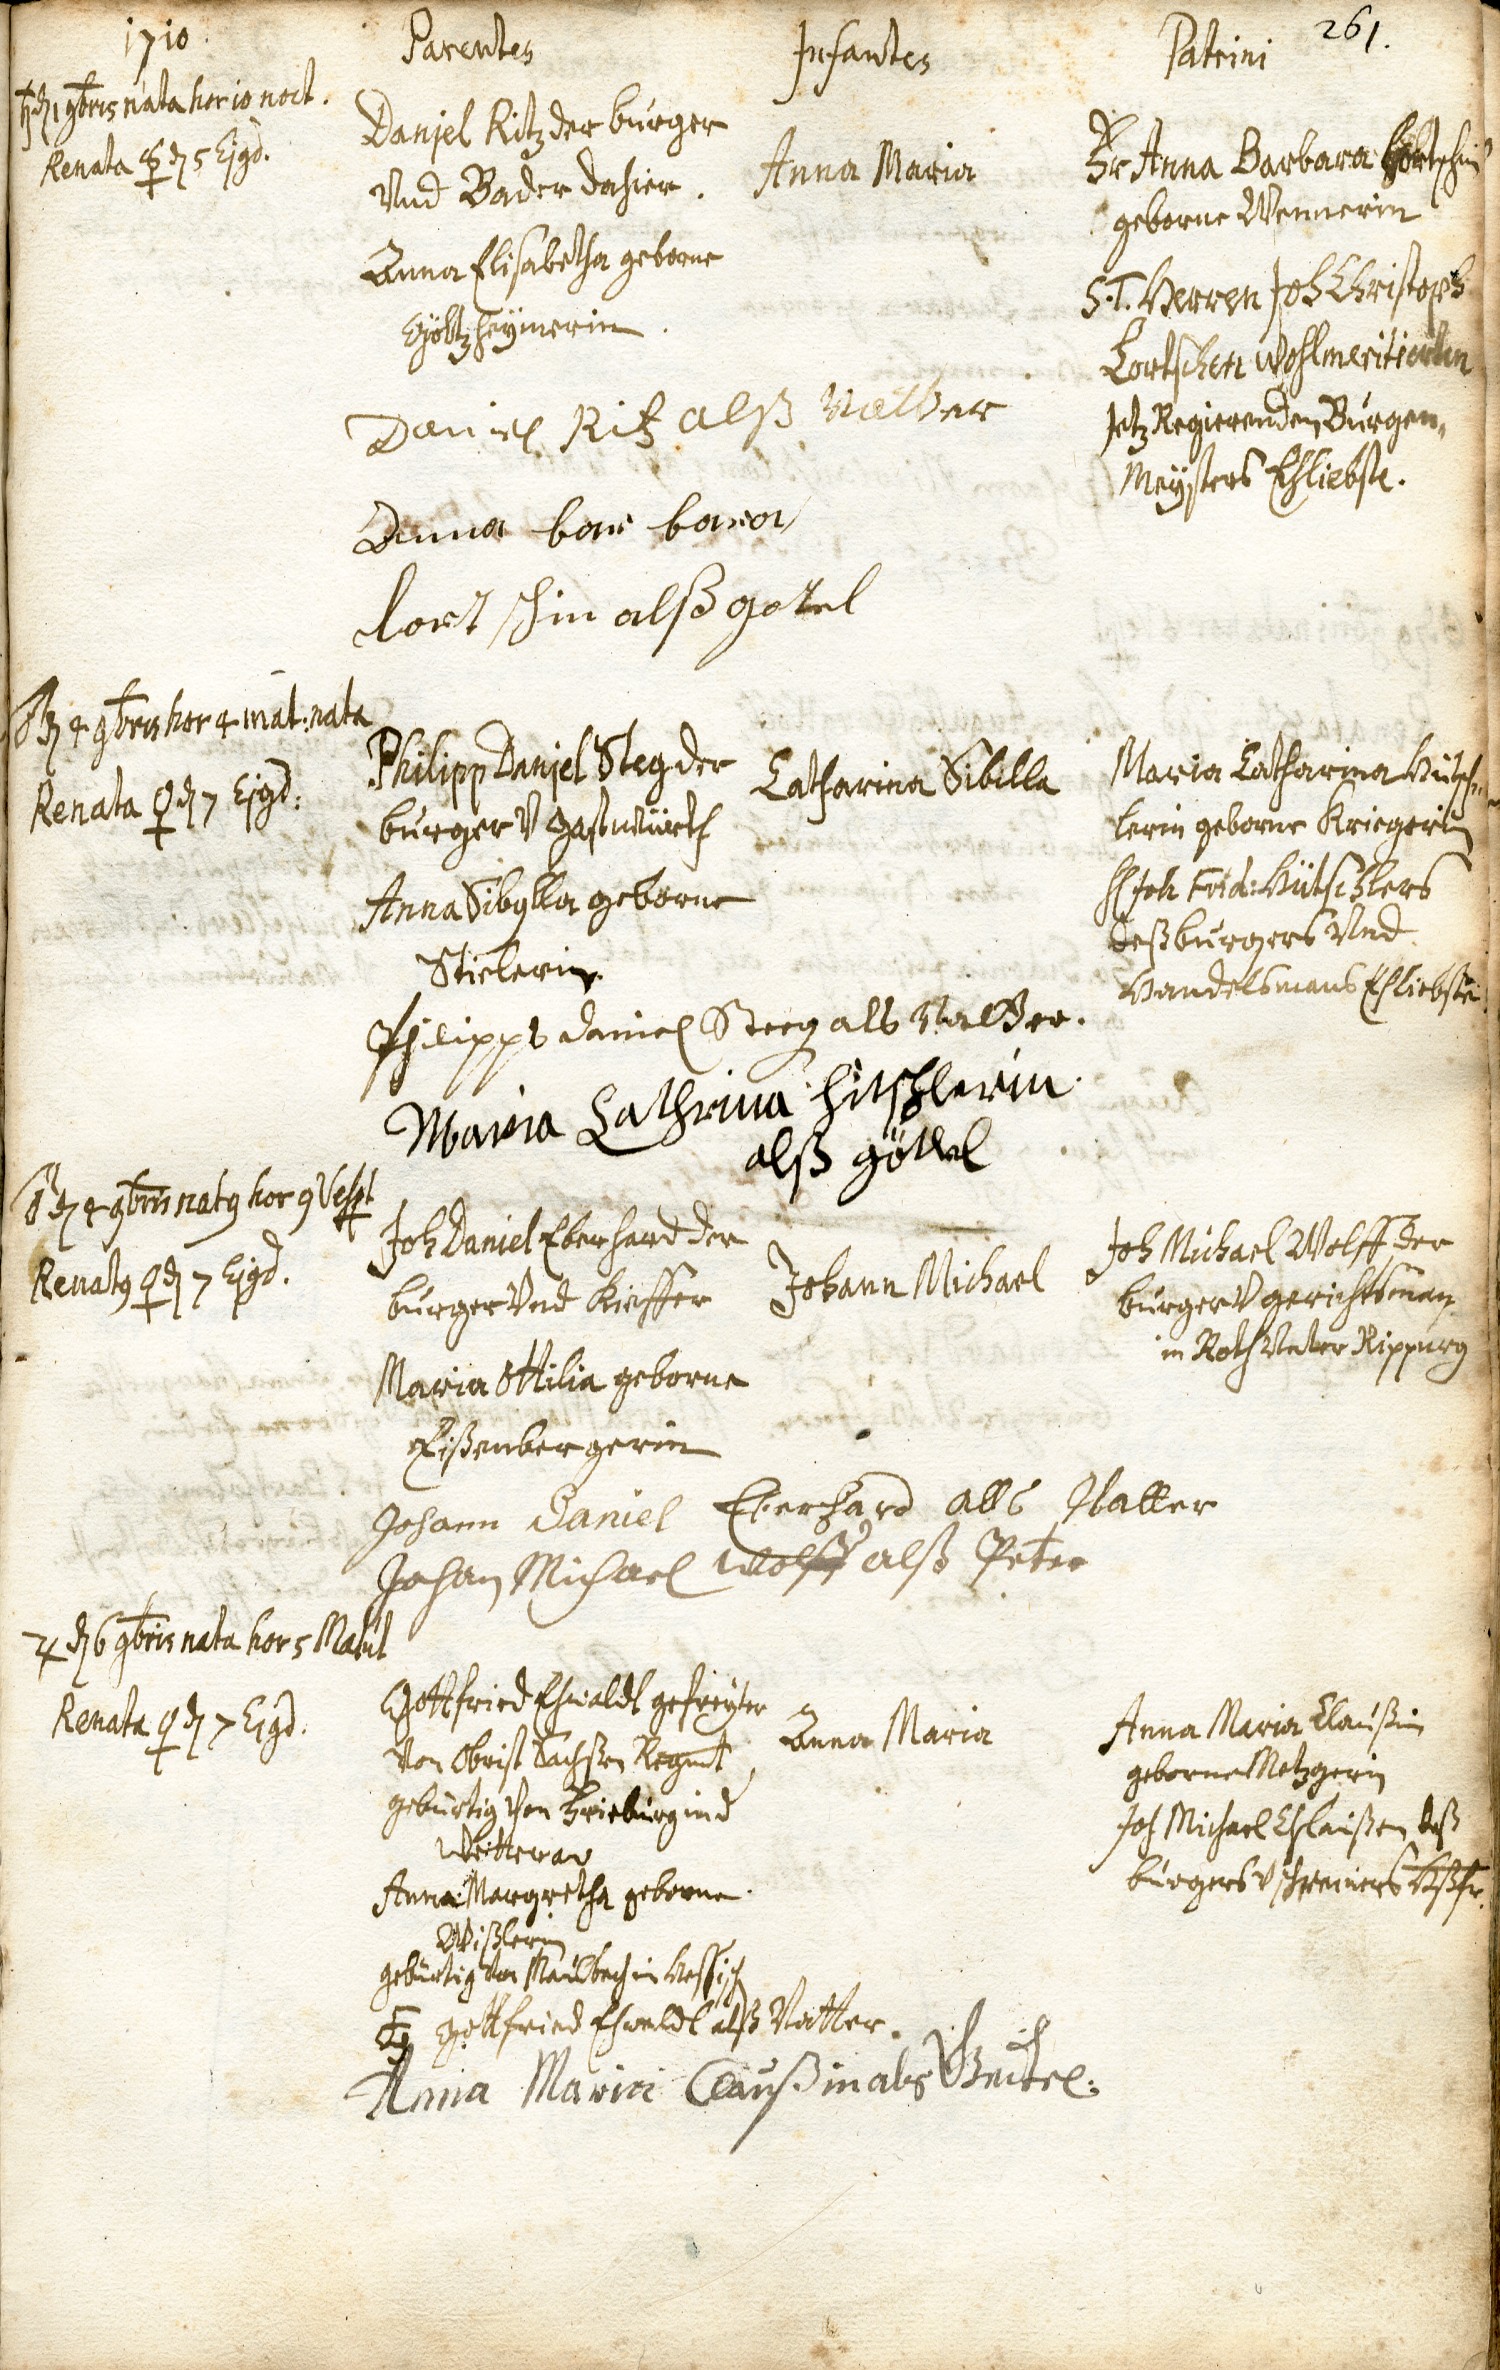 1710. Parentes Infantes Patrini 261.
♄ d 1 9bris nata hor 10 noct.
Renata ☿ d 5 Ejgd.
Danjel Ritz der burger
Vnd Bader dahier.
Anna Elisabetha geborne
Götzheymerin.
Anna Maria
Fr Anna Barbara Lortschin
geborne Wennerin
S.T. Herren Joh Christoph
Lortschen wohlmeritierten
Jetz Regierenden Burgen„
Meysters Ehliebste.
Daniel Ritz alß Vatter
Anna bar bara
lort schin alß gotel
♂ d 4 9bris hor 4 mat: nata
Renata ♀ d 7 Ejgd:
Philipp Danjel Steg der
burger V gastwürth
Anna Sibylla geborne
Stielerin
Catharina Sibilla
Maria Catharina Hütsch„
lerin geborne Kriegerin
H Joh Frid: Hütschlers
deß burgers Vnd
Handelsmans Ehliebste
Philipps Daniel Steeg als Vatter.
Maria Cathrina hitschlerin
alß göttel
♂ d 4 9bris nat9 hor 9 Vespt
Renat9 ♀ d 7 Ejgd.
Joh Daniel Eberhard der
burger Vnd Kieffer
Maria Ottilia geborne
Eißenbergerin
Johann Michael
Joh Michael Wolff der
burger V gerichtsman
in Roth Vnter Rippurg
Johann Daniel Eberhard alls Vatter
Johan Michael Wolff alß Peter
♃ d 6 9bris nata hor 5 Matut
Renata ♀ d 7 Ejgd.
Gottfried Ehwaldt gefreyter
Von Obrist Sachßen Regmt
gebürtig von Frieburg in d
Wetterav
Anna Margretha geborne
Wißlerin
gebürtig von Maulbach in Hessisch
Anna Maria
Anna Maria Claußin
geborne Metzgerin
Joh Michael Chlaußen deß
burgers V schreiners Haßfr.
gottfried Ehwaldt alß Vatter.
Anna Maria Claußin als